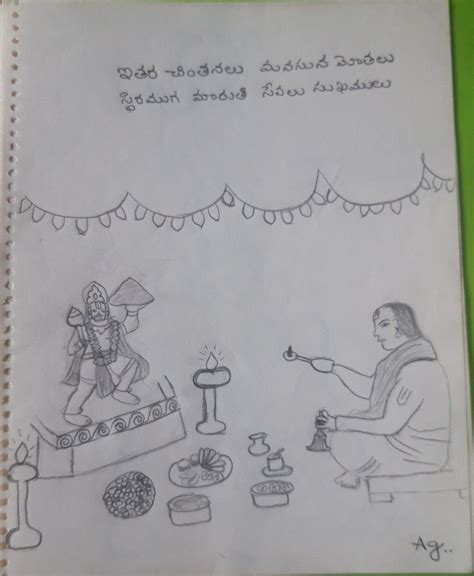 ఇతర చింతనలు మనసున మోతలు
స్థిరముగ మారుతి సేవలు సుఖములు
Ag..